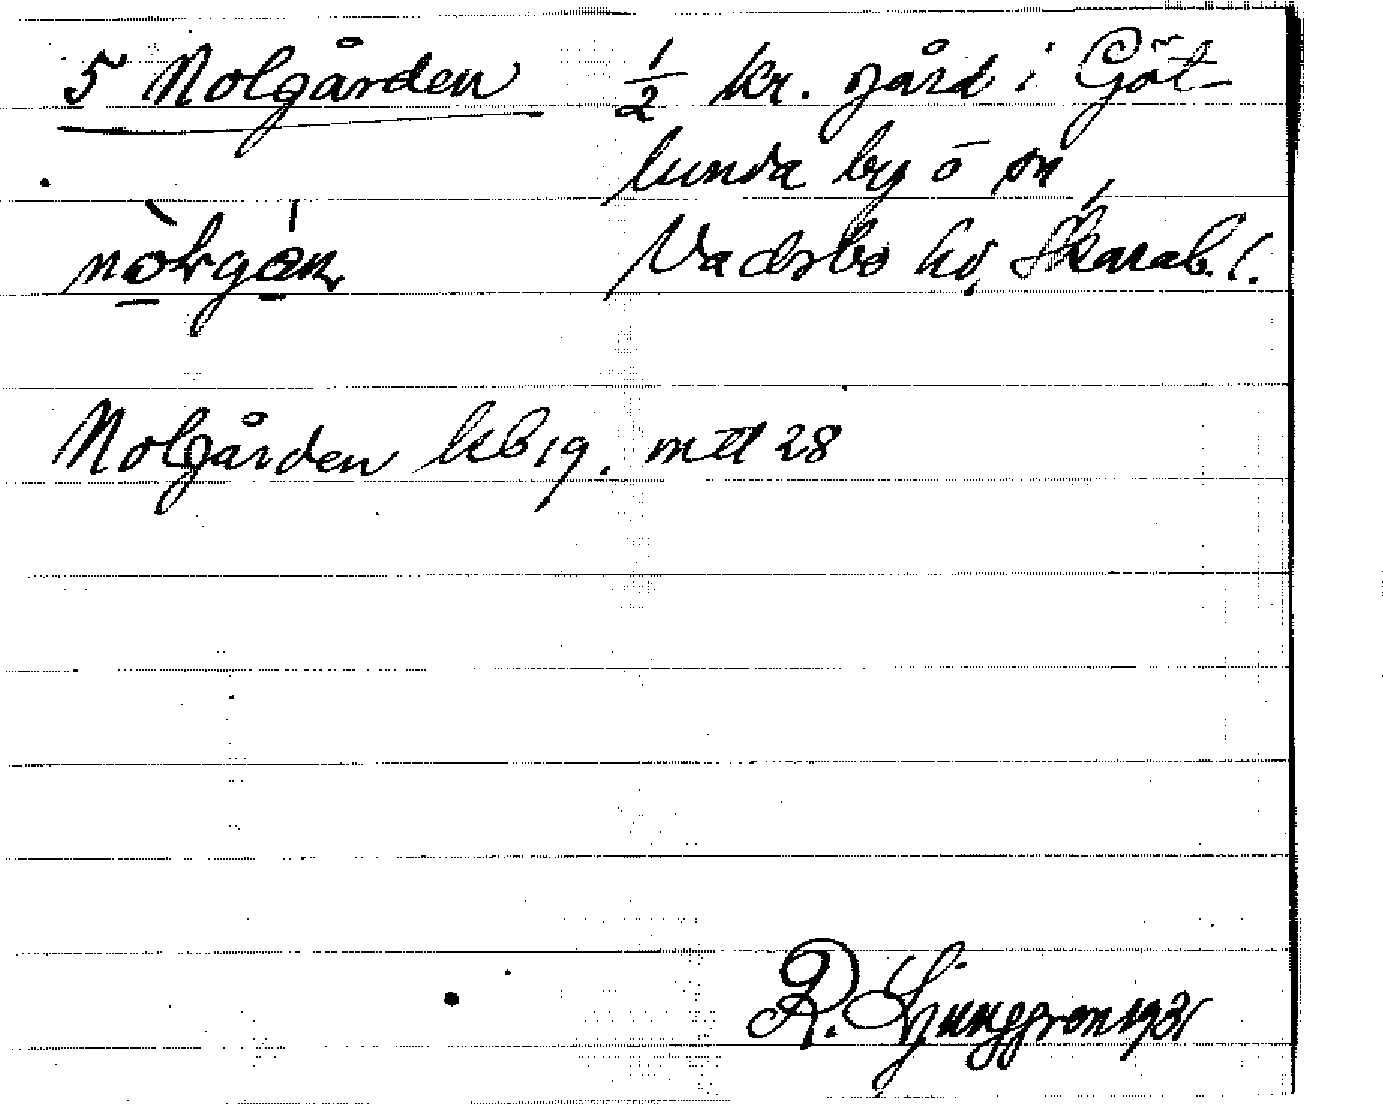 5 Nolgården ½ kr. gård i Göt-
lunda by o sn,
Vadsbo hd, Skarab. l.
Nolgården kb 19. mtl 28
R. Ljunggren 1931